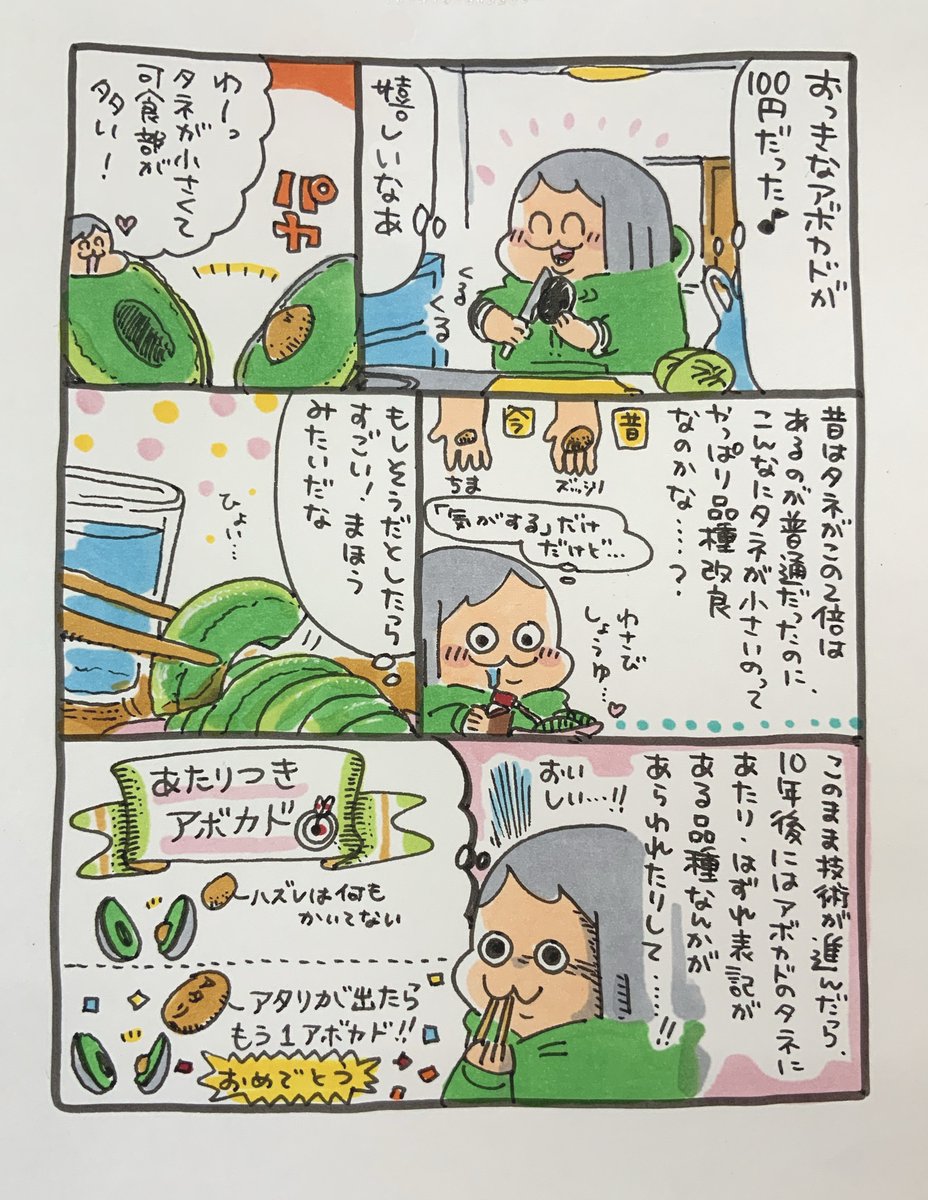 おっきなアボカドが
100円だった♪
嬉しいなあ
くる
くる
パカ
わーっ
タネが小さくて
可食部が
多い!
昔はタネがこの2倍は
あるのが普通だったのに、
こんなにタネが小さいのって
やっぱり品種改良
なのかな…?
昔
ズッシリ
今
ちま
「気がする」だけ
だけど…
わさび
しょうゆ…♡
もしそうだとしたら
すごい!まほう
みたいだな
ひょい…
このまま技術が進んだら、
10年後にはアボカドのタネに
あたり・はずれ表記が
ある品種なんかが
あらわれたりして……!!
おい
しい…!!
あたりつき
アボカド
ハズレは何も
かいてない
アタリ
アタリが出たら
もう1アボカド!!
おめでとう